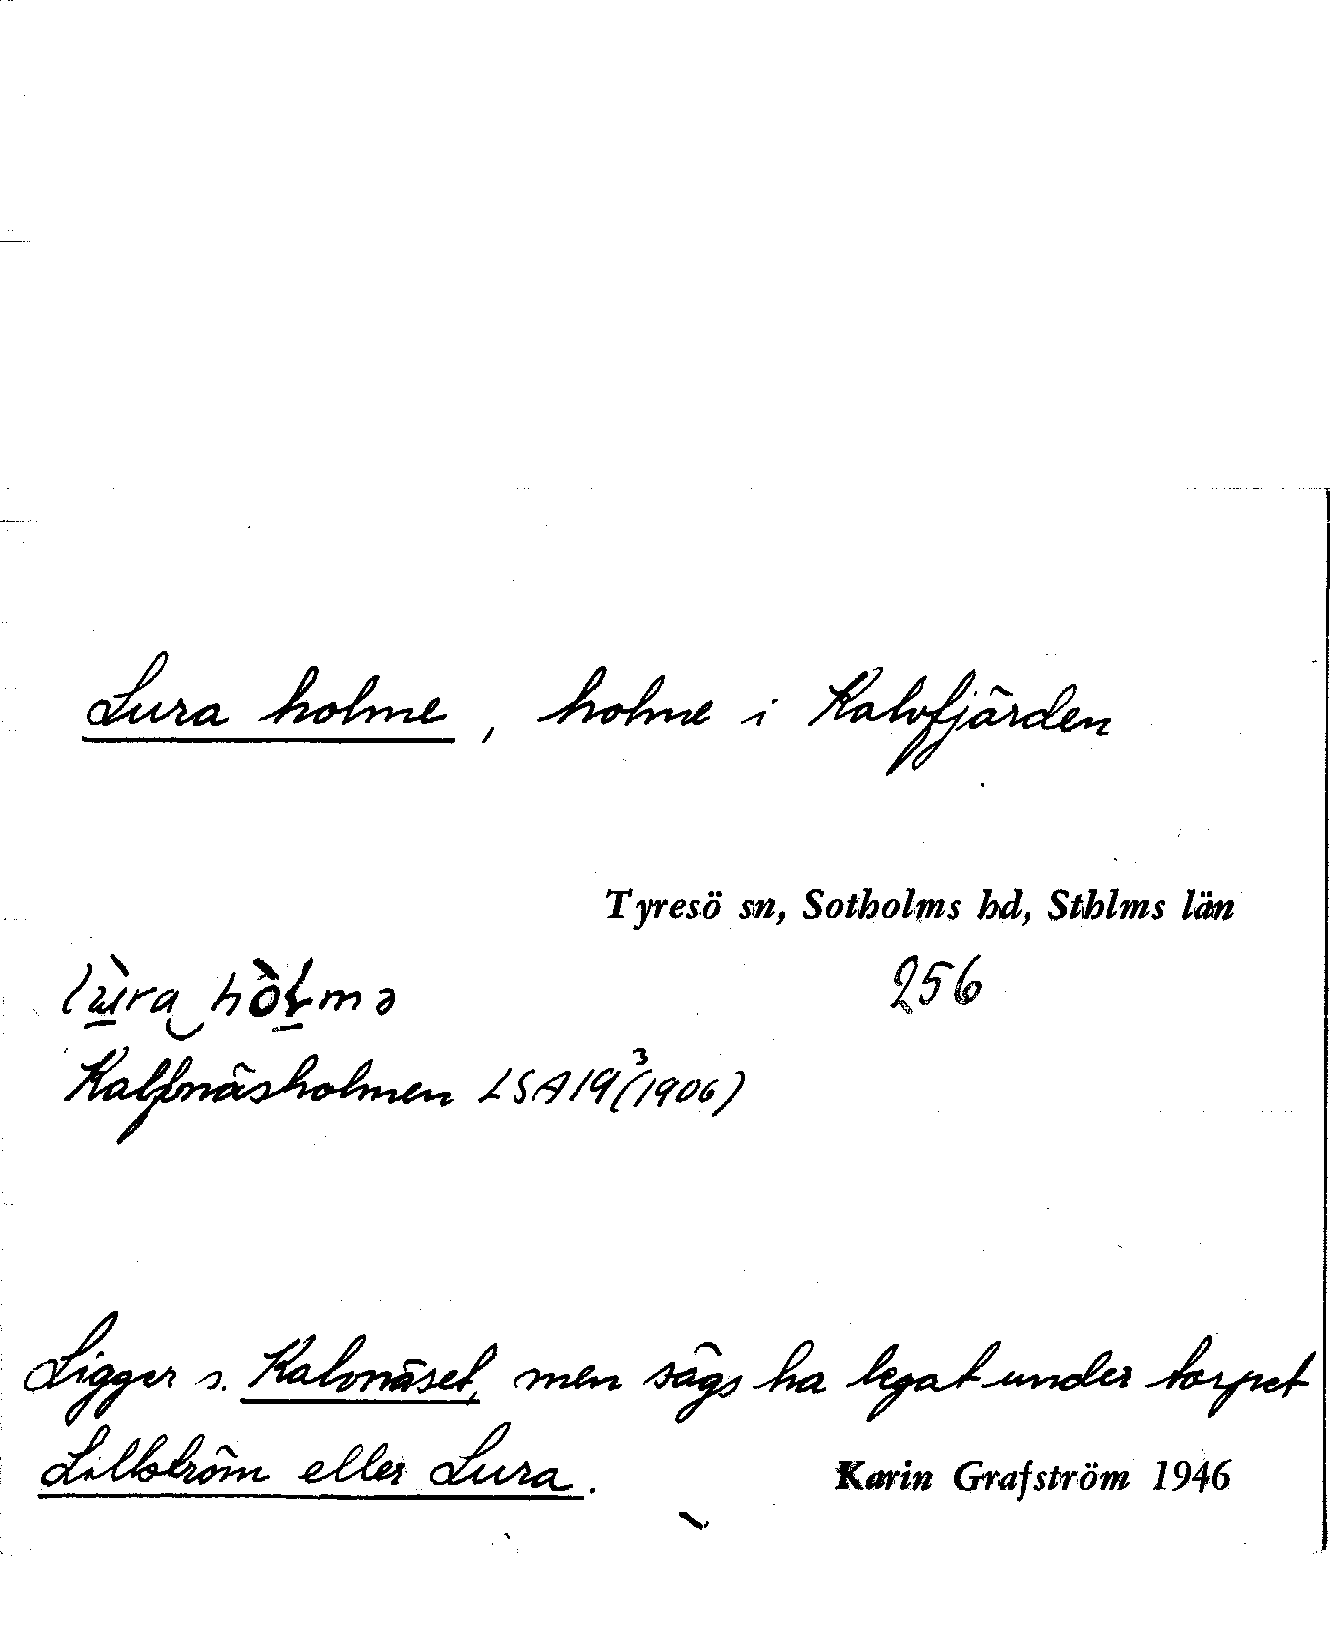 Lura holme, holme i Kalvfjärden
Tyresö sn, Sotholms hd, Sthlms län
lùra hòlmə 256
Kalfnäsholmen LSA19³(1906)
Ligger s. Kalvnäset, men sägs ha legat under torpet
Lillström eller Lura.
Karin Grafström 1946